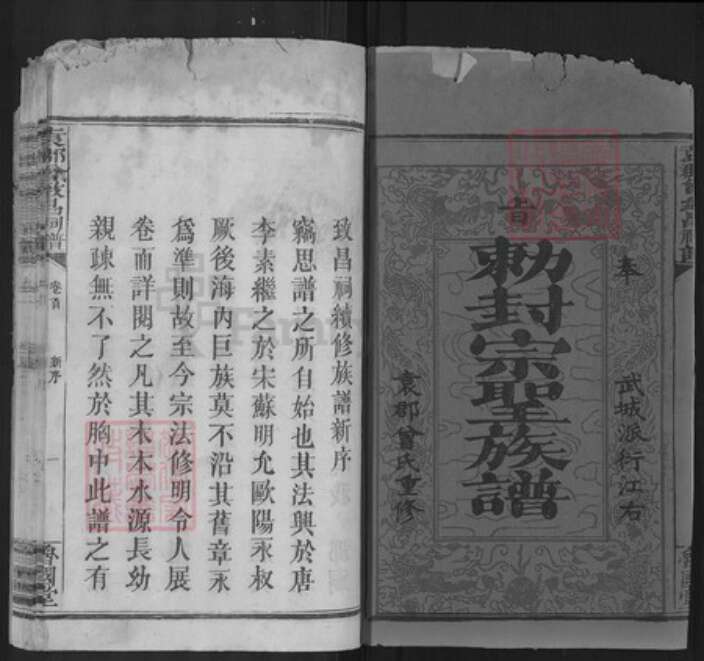 奉
旨
勅封宗聖族譜
武城派衍江右
袁郡曾氏重修
致昌祠續修族譜新序
竊思譜之所自始也其法興於唐
李素繼之於宋蘇明允歐陽永叔
厥後海內巨族莫不沿其舊章永
為準則故至今宗法修明令人展
卷而詳閱之凡其木本水源長幼
親疎無不了然於胸中此譜之有
卷首
新序
一
魯國堂